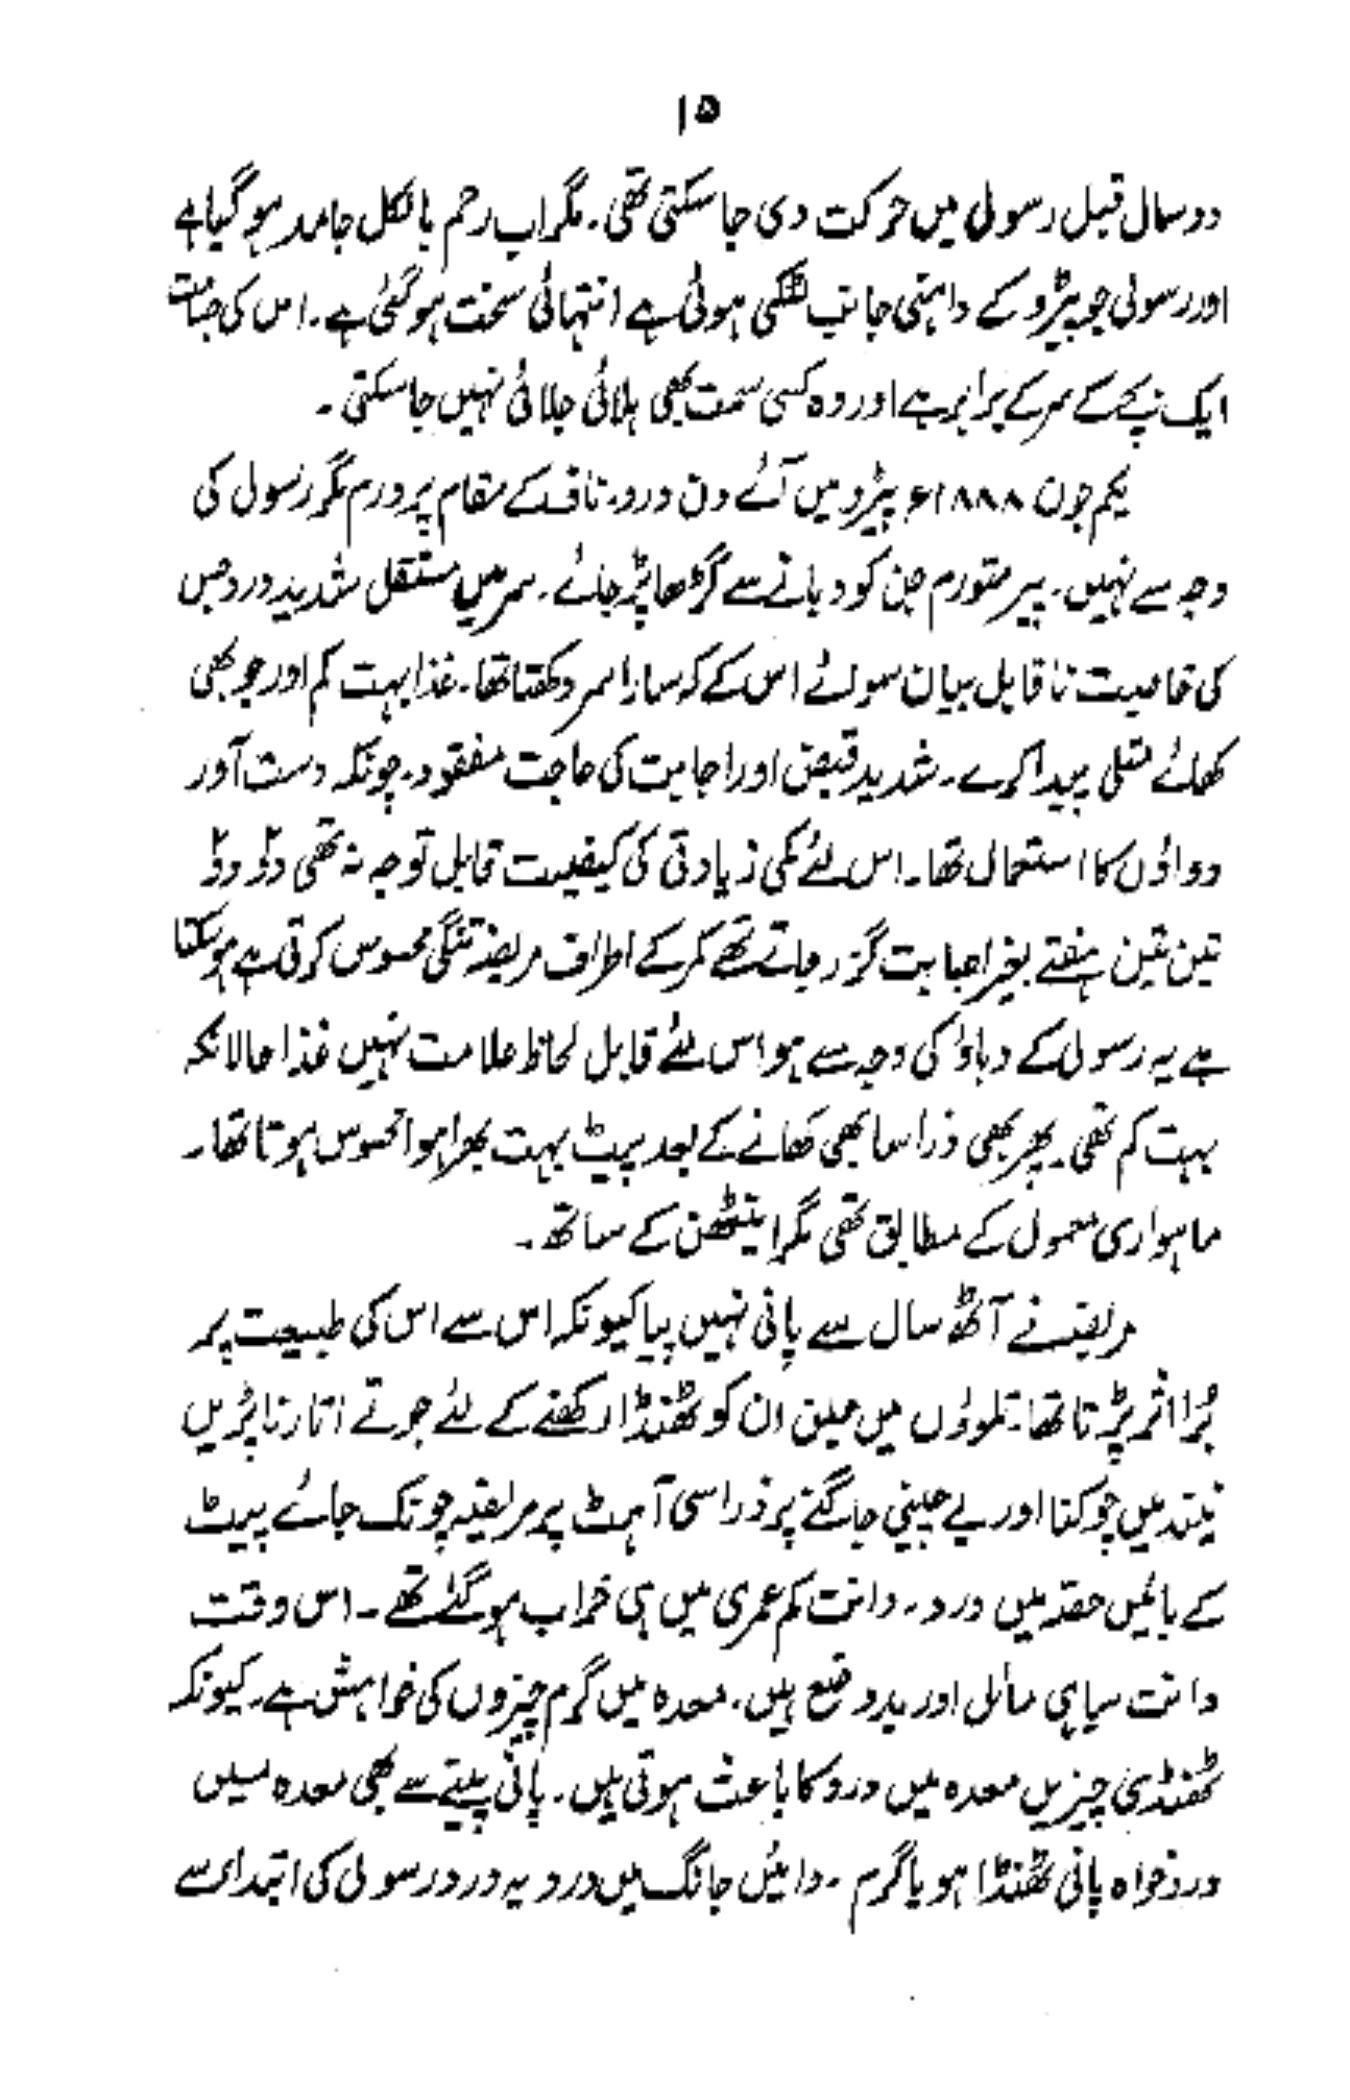 ۱۵
دو سال قبل رسولی میں حرکت دی جا سکتی تھی۔ مگر اب رحم بالکل جامد ہو گیا ہے
اور رسولی جو پیڑو کے داہنی جانب لٹکی ہوئی ہے انتہائی سخت ہو گئی ہے۔ اس کی جسامت
ایک بچے کے سر کے برابر ہے اور وہ کسی سمت بھی ہلائی جلائی نہیں جا سکتی۔
یکم جون ۱۸۸۸ء پیڑو میں آئے دن درد۔ ناف کے مقام پر ورم مگر رسولی کی
وجہ سے نہیں۔ پیر متورم جن کو دبانے سے گڑھا پڑ جائے۔ سر میں مستقل شدید درد جس
کی خاصیت ناقابل بیان سوائے اس کے کہ سارا سر دکھتا تھا۔ غذا بہت کم اور جو بھی
کھائے متلی پیدا کرے۔ شدید قبض اور اجابت کی حاجت مفقود۔ چونکہ دست آور
دواؤں کا استعمال تھا۔ اس لئے کمی زیادتی کی کیفیت قابل توجہ نہ تھی دو دو
تین تین ہفتے بغیر اجابت گزر جاتے تھے کمر کے اطراف مریضہ تنگی محسوس کرتی ہے ہو سکتا
ہے یہ رسولی کے دباؤ کی وجہ سے ہو اس لئے قابل لحاظ علامت نہیں غذا حالانکہ
بہت کم تھی۔ پھر بھی ذرا سا بھی کھانے کے بعد پیٹ بہت بھرا ہوا محسوس ہوتا تھا۔
ماہواری معمول کے مطابق تھی مگر اینٹھن کے ساتھ۔
مریضہ نے آٹھ سال سے پانی نہیں پیا کیونکہ اس سے اس کی طبیعت پر
بُرا اثر پڑتا تھا۔ تلوؤں میں جلن ان کو ٹھنڈا رکھنے کے لئے جوتے اتارنا پڑیں
نیند میں چوکنا اور بے چینی جاگنے پر ذرا سی آہٹ پر مریضہ چونک جائے پیٹ
کے بائیں حصّہ میں درد۔ دانت کم عمری میں ہی خراب ہو گئے تھے۔ اس وقت
دانت سیاہی مائل اور بدوضع ہیں۔ معدہ میں گرم چیزوں کی خواہش ہے۔ کیونکہ
ٹھنڈی چیزیں معدہ میں درد کا باعث ہوتی ہیں۔ پانی پینے سے بھی معدہ میں
درد خواہ پانی ٹھنڈا ہو یا گرم۔ دائیں جانگ میں درد یہ درد رسولی کی ابتداء سے